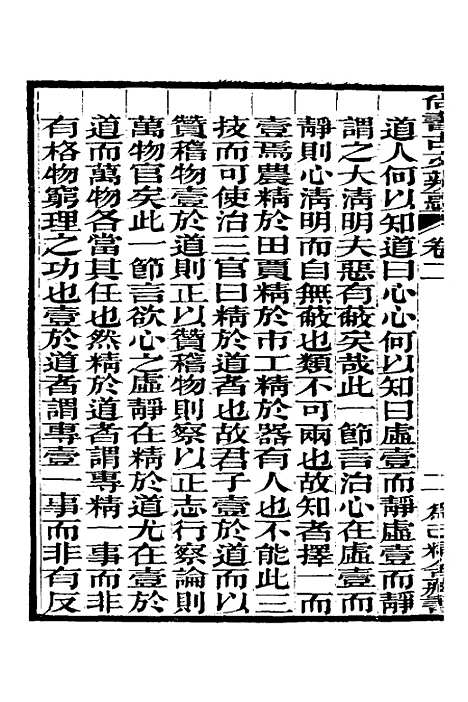 尚書古文辨惑 卷二 二
道人何以知道曰心心何以知曰虛壹而靜虛壹而靜
謂之大淸明夫惡有蔽矣哉此一節言治心在虛壹而
靜則心淸明而自無蔽也類不可兩也故知者擇一而
壹焉農精於田賈精於市工精於器有人也不能此三
技而可使治三官曰精於道者也故君子壹於道而以
贊稽物壹於道則正以贊稽物則察以正志行察論則
萬物官矣此一節言欲心之虛靜在精於道尤在壹於
道而萬物各當其任也然精於道者謂專精一事而非
有格物窮理之功也壹於道者謂專壹一事而非有反